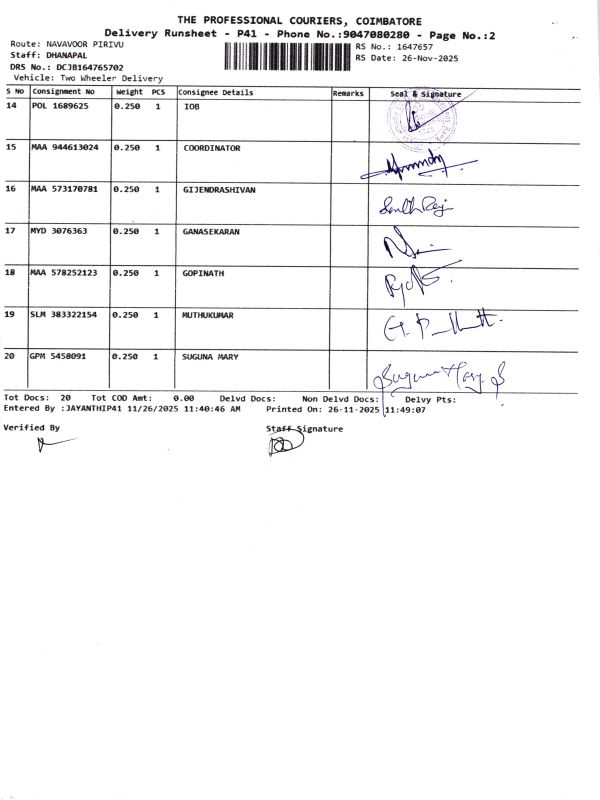 THE PROFESSIONAL COURIERS, COIMBATORE
Delivery Runsheet - P41 - Phone No.:9047080280 - Page No.:2
Route: NAVAVOOR PIRIVU
Staff: DHANAPAL
DRS No.: DCJB164765702
Vehicle: Two Wheeler Delivery
RS No.: 1647657
RS Date: 26-Nov-2025
S No Consignment No Weight PCS Consignee Details Remarks Seal & Signature
14 POL 1689625 0.250 1 IOB
15 MAA 944613024 0.250 1 COORDINATOR
16 MAA 573170781 0.250 1 GIJENDRASHIVAN
17 MYD 3076363 0.250 1 GANASEKARAN
18 MAA 578252123 0.250 1 GOPINATH
19 SLM 383322154 0.250 1 MUTHUKUMAR
20 GPM 5458091 0.250 1 SUGUNA MARY Suguna Mary S
Tot Docs: 20 Tot COD Amt: 0.00 Delvd Docs: Non Delvd Docs: Delvy Pts:
Entered By :JAYANTHIP41 11/26/2025 11:40:46 AM Printed On: 26-11-2025 11:49:07
Verified By Staff Signature